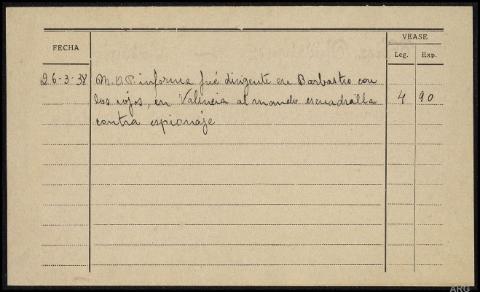 FECHA
VEASE
Leg. Exp.
26-3-38 M.O.P. informa fué dirigente en Barbastro con
los rojos, en Valencia al mando escuadrilla 4 90
contra espionaje
ARG